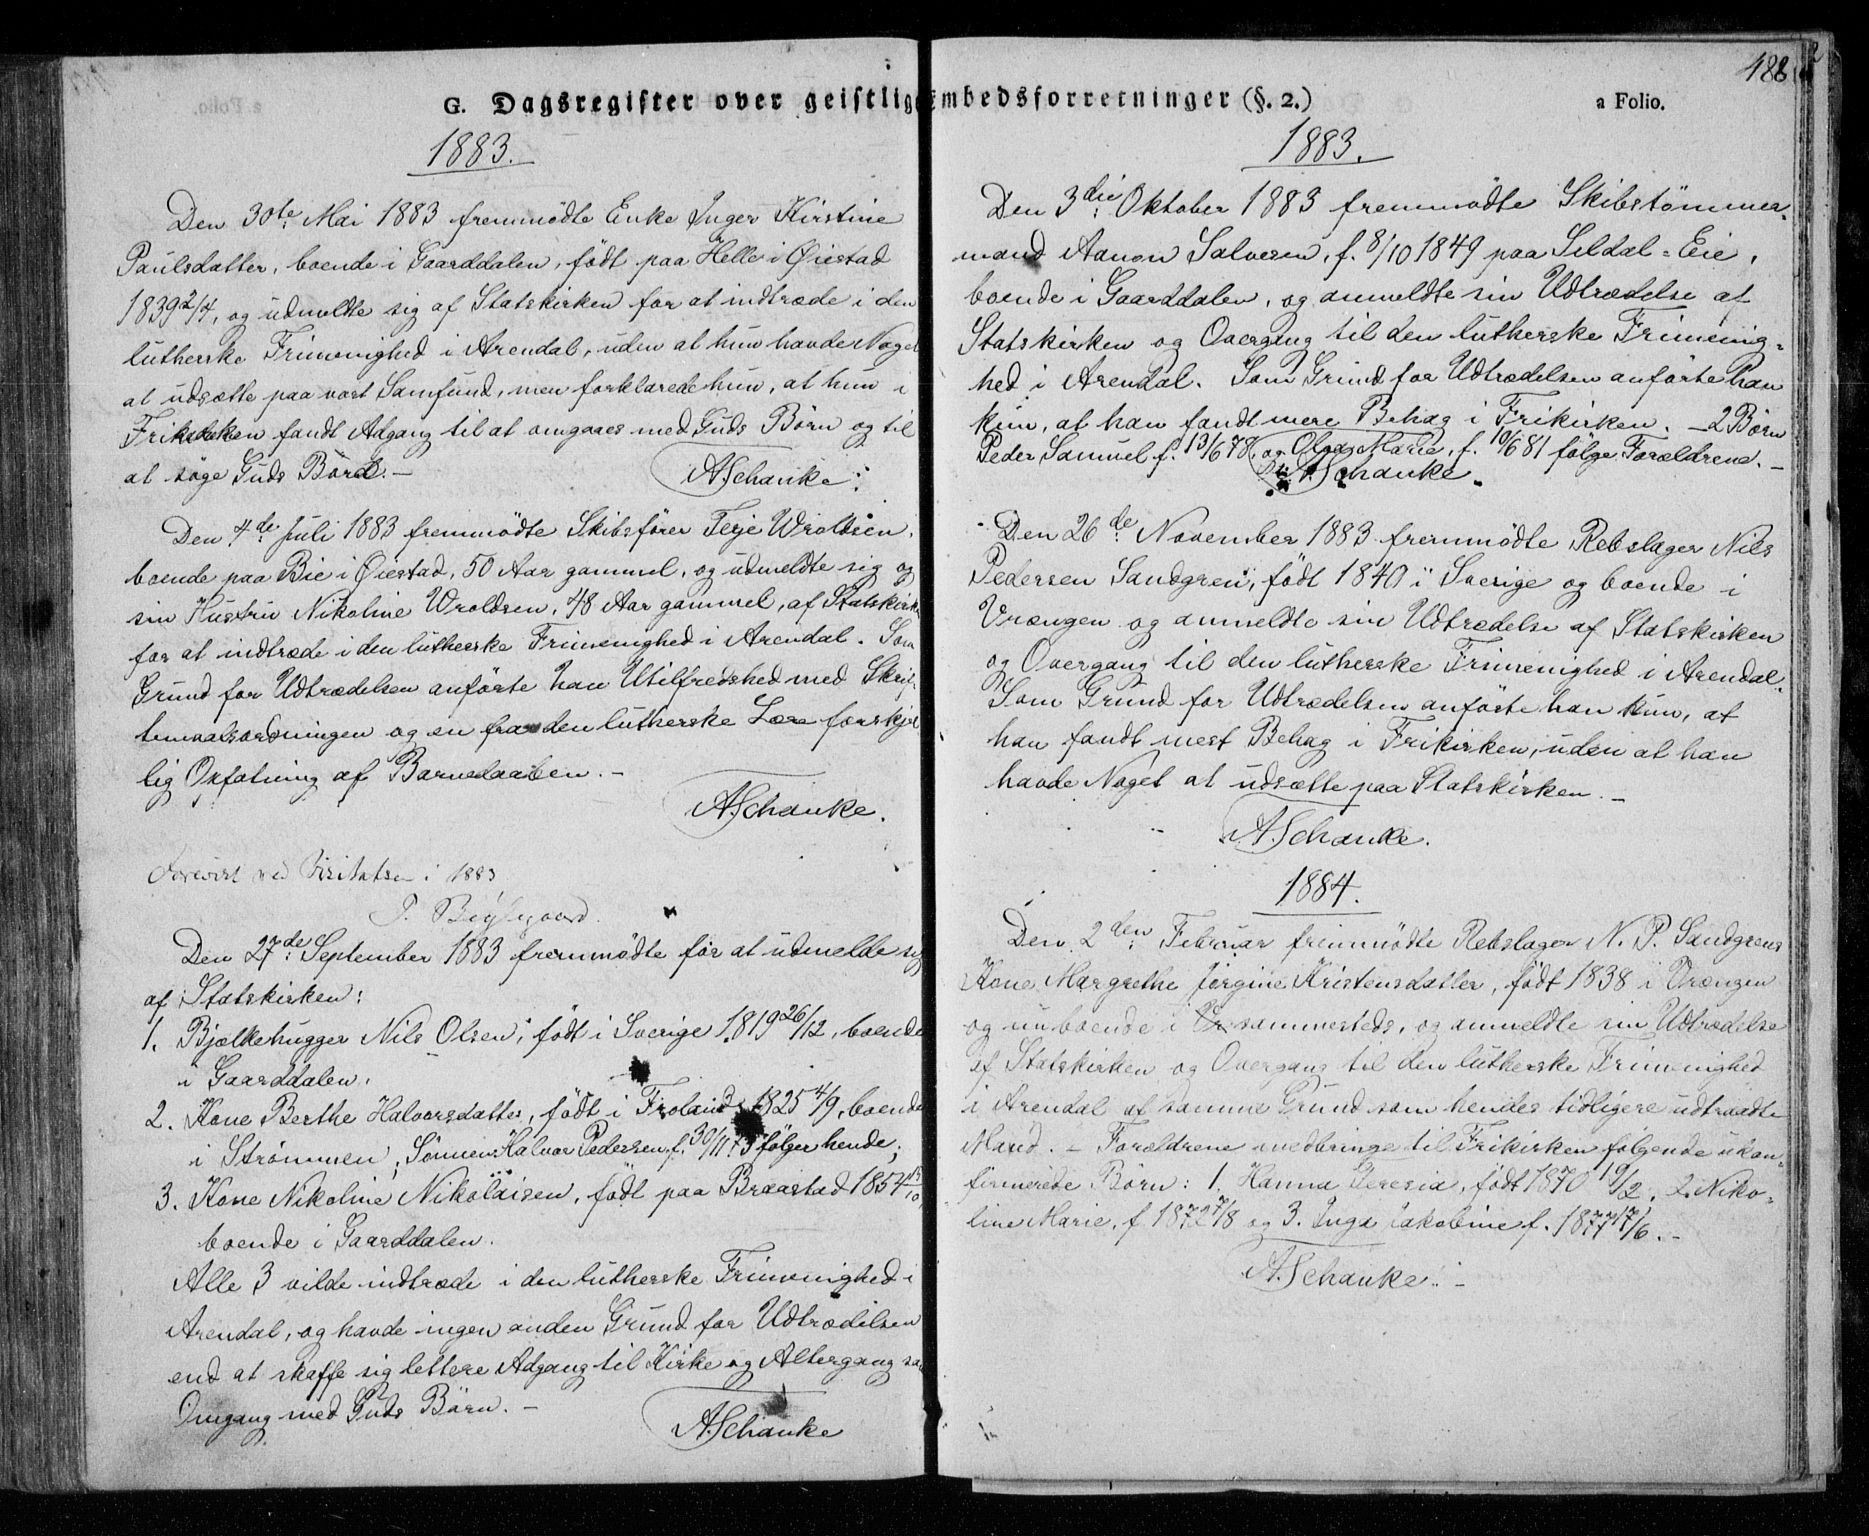 G. Dagsregister over geistlige Embedsforretninger (§. 2.)
a Folio.
188
1883.
Den 30te Mai 1883 fremmødte Enke Inger Kirstine
Paulsdatter, boende i Gaarddalen, født paa Helle i Øiestad
1839 2/4, og udmeldte sig af Statskirken for at indtræde i den
lutherske Frimenighed i Arendal, uden at hun havde Noget
at udsætte paa vort Samfund, men forklarede hun, at hun i
Frikirken fandt Adgang til at omgaaes med Guds Børn og til
at søge Guds Bord. —
A. Schanke.
Den 4de Juli 1883 fremmødte Skibsfører Terje Wroldsen,
boende paa Bie i Øiestad, 50 Aar gammel, og udmeldte sig og
sin Hustru Nikoline Wroldsen, 48 Aar gammel, af Statskirken
for at indtræde i den lutherske Frimenighed i Arendal. Som
Grund for Udtrædelsen anførte han Utilfredshed med Skrif-
temaalsordningen og en fra den lutherske Lære forskjel
lig Opfatning af Barnedaaben. —
A. Schanke.
Forevist ved Visitatsen i 1883
Den 27de September 1883 fremmødte for at udmelde sig
af Statskirken:
1. Bjælkehugger Nils Olsen, født i Sverige 1819 26/12, boende
i Gaarddalen.
2. Kone Berthe Halvorsdatter, født i Froland 1825 4/9, boende
i Strømmen; Sønnen Halvor Pedersen f. 30/11 73 følger hende;
3. Kone Nikoline Nikolaisen, født paa Braastad 1854
boende i Gaarddalen.
Alle 3 vilde indtræde i den lutherske Frimenighed i
Arendal, og havde ingen anden Grund for Udtrædelsen
end at skaffe sig lettere Adgang til Kirke og Altergang samt
Omgang med Guds Børn. —
A. Schanke
1883.
Den 3die Oktober 1883 fremmødte Skibstømmer-
mand Aanon Salvesen, f. 8/10 1849 paa Seldal=Eie,
boende i Gaarddalen, og anmeldte sin Udtrædelse af
Statskirken og Overgang til den lutherske Frimenig=
hed i Arendal. Som Grund for Udtrædelsen anførte han
kun, at han fandt mere Behag i Frikirken. — 2 Børn
Peder Samuel f. 13/6 78, og Olga Marie, f. 10/6 81 følge Forældrene. —
A. Schanke.
Den 26de November 1883 fremmødte Rebslager Nils
Pedersen Sandgren, født 1840 i Sverige og boende i
Vrængen og anmeldte sin Udtrædelse af Statskirken
og Overgang til den lutherske Frimenighed i Arendal.
Som Grund for Udtrædelsen anførte han kun, at
han fandt mest Behag i Frikirken, uden at han
havde Noget at udsætte paa Statskirken. —
A. Schanke.
1884.
Den 2den Februar fremmødte Rebslager N. P. Sandgrens
Kone Margrethe Jørgine Kristensdatter, født 1838 i Vrængen
og nu boende i sammesteds, og anmeldte sin Udtrædelse
af Statskirken og Overgang til den lutherske Frimenighed
i Arendal af samme Grund som hendes tidligere udtraadte
Mand. — Forældrene medbringe til Frikirken følgende ukon=
firmerede Børn: 1. Hanna Teresia, født 1870 19/2, 2. Niko=
line Marie, f. 1872 7/8 og 3. Inga Jakobine f. 1877 17/6. —
A. Schanke. —